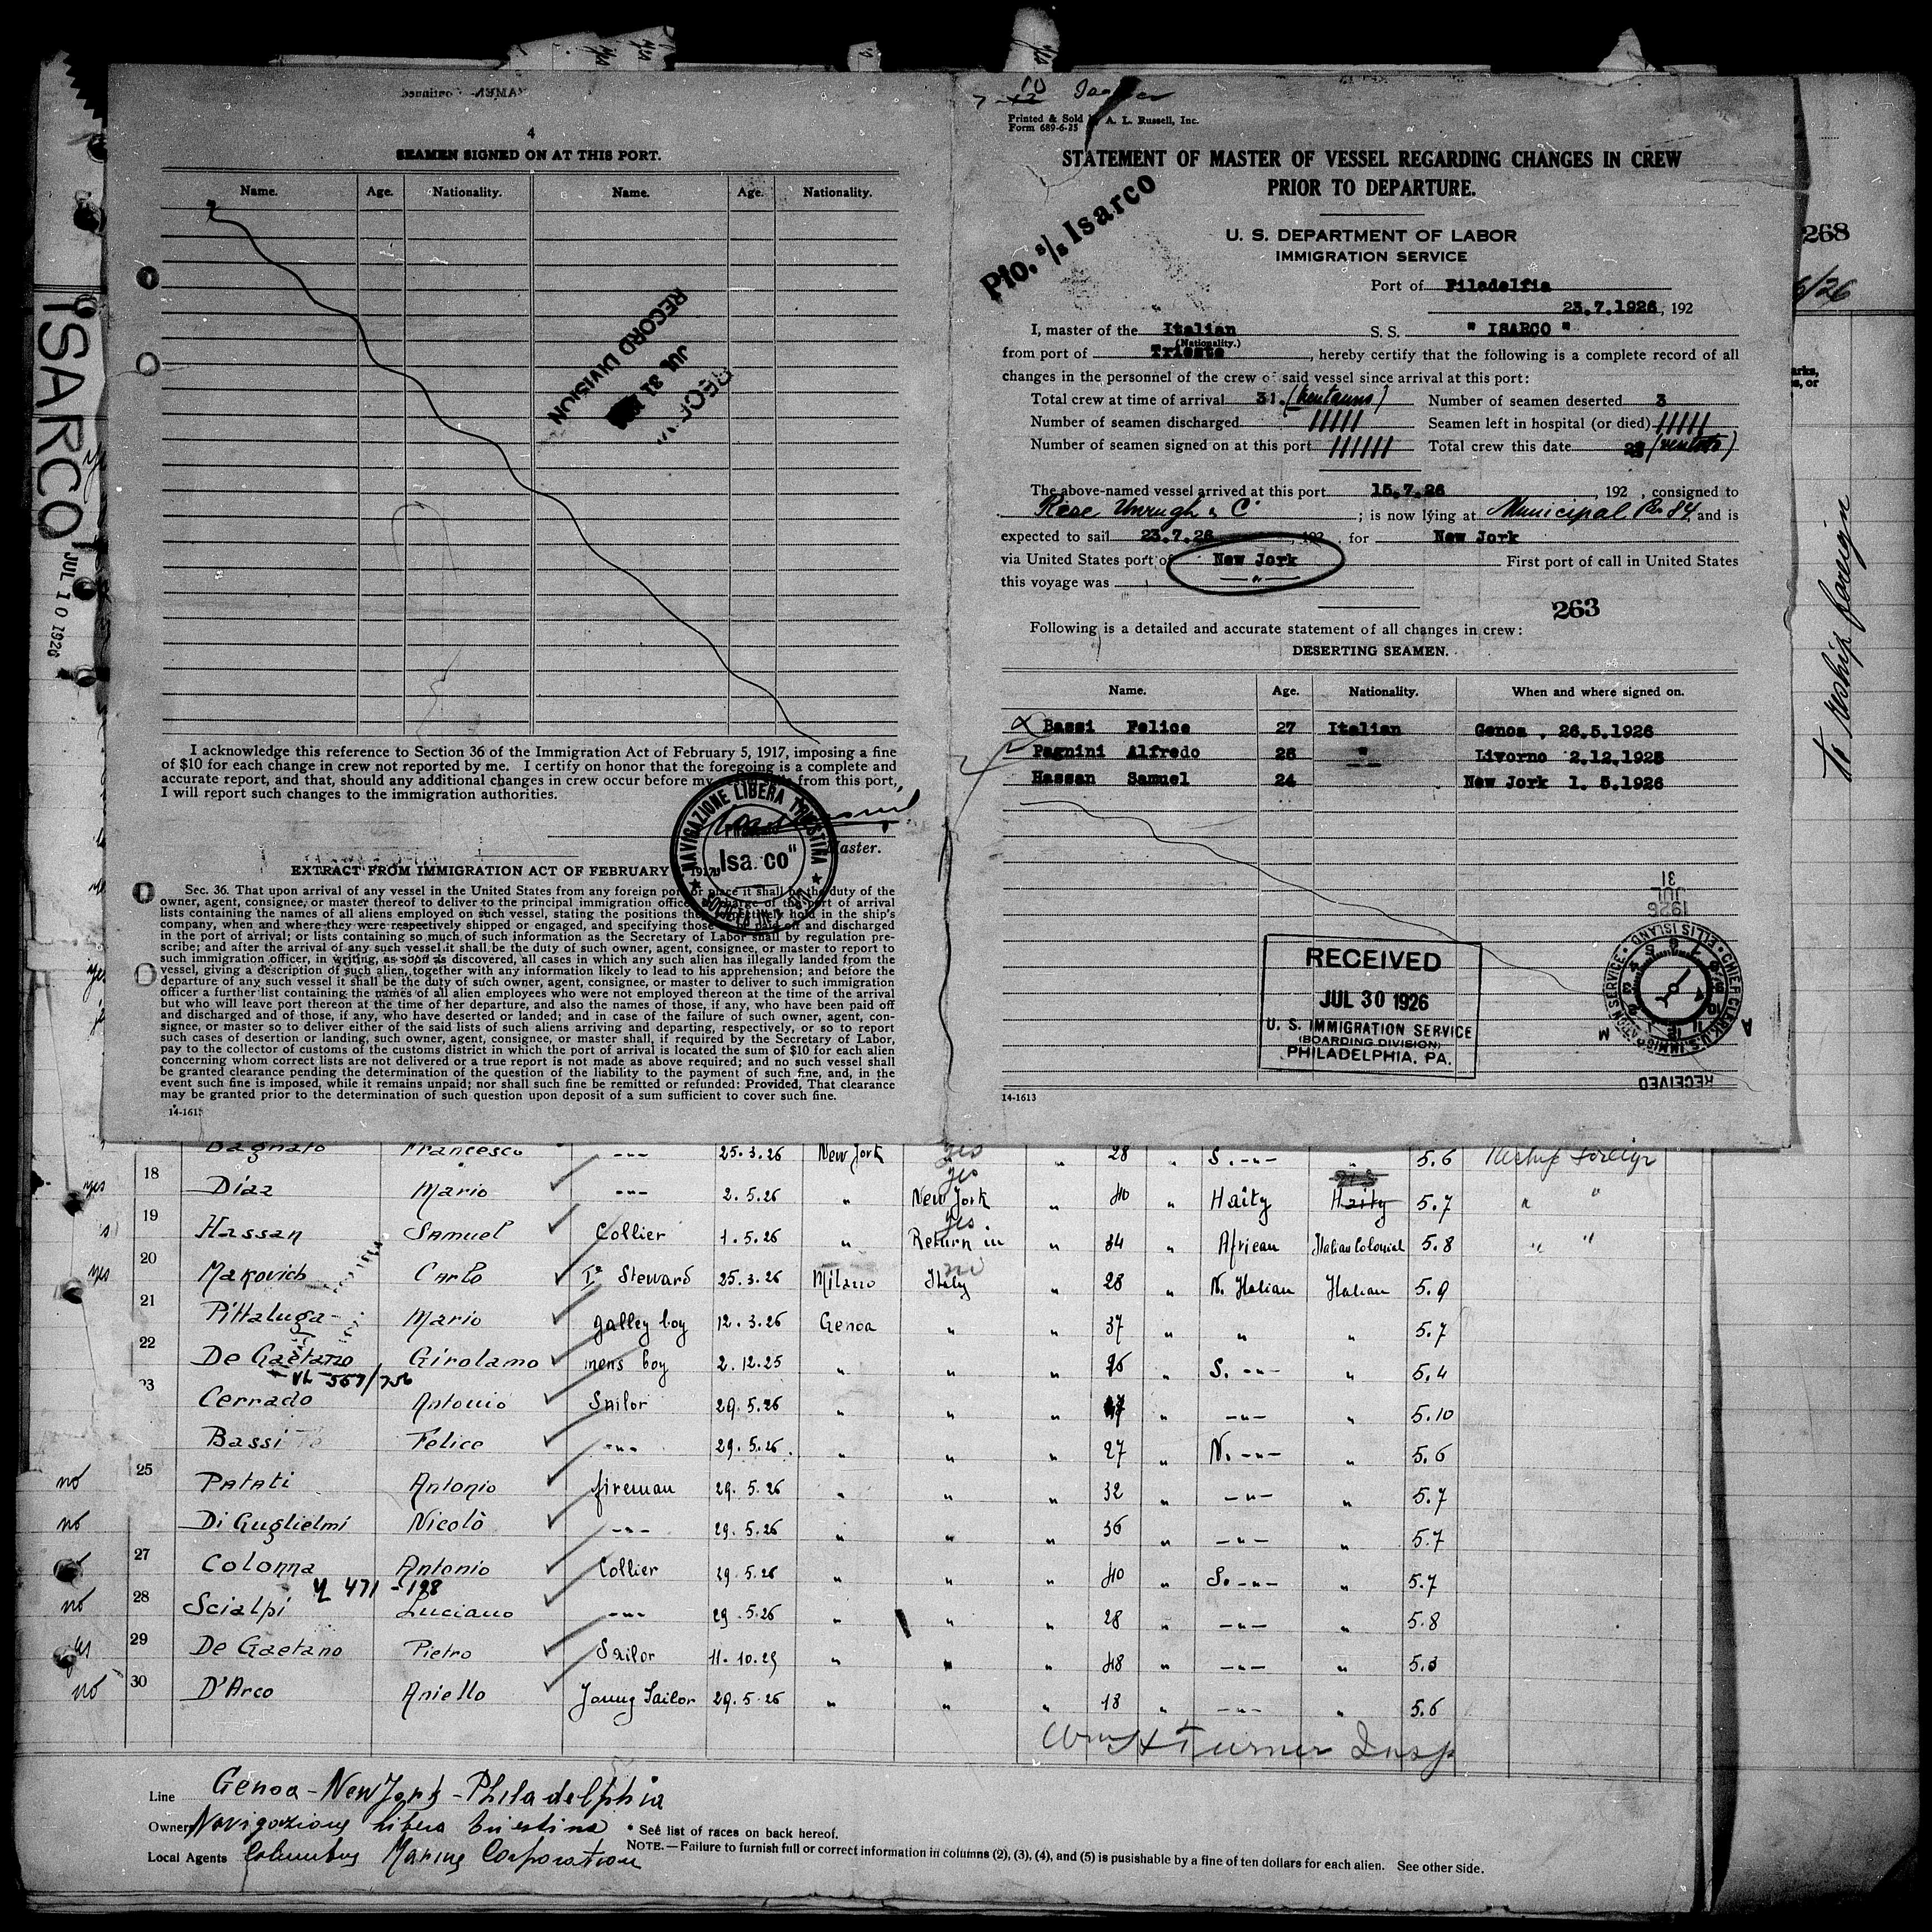 SEAMEN - Continued
4
SEAMEN SIGNED ON AT THIS PORT.
Name. Age. Nationality. Name. Age. Nationality.
RECORD DIVISION
JUL 31
I acknowledge this reference to Section 36 of the Immigration Act of February 5, 1917, imposing a fine
of $10 for each change in crew not reported by me. I certify on honor that the foregoing is a complete and
accurate report, and that, should any additional changes in crew occur before my from this port,
I will report such changes to the immigration authorities.
NAVIGAZIONE LIBERA TRIESTINA
"Isarco"
Master.
EXTRACT FROM IMMIGRATION ACT OF FEBRUARY 1917.
Sec. 36. That upon arrival of any vessel in the United States from any foreign port or place it shall be the duty of the
owner, agent, consignee, or master thereof to deliver to the principal immigration officer in charge of the port of arrival
lists containing the names of all aliens employed on such vessel, stating the positions they respectively hold in the ship's
company, when and where they were respectively shipped or engaged, and specifying those paid off and discharged
in the port of arrival; or lists containing so much of such information as the Secretary of Labor shall by regulation pre-
scribe; and after the arrival of any such vessel it shall be the duty of such owner, agent, consignee, or master to report to
such immigration officer, in writing, as soon as discovered, all cases in which any such alien has illegally landed from the
vessel, giving a description of such alien, together with any information likely to lead to his apprehension; and before the
departure of any such vessel it shall be the duty of such owner, agent, consignee, or master to deliver to such immigration
officer a further list containing the names of all alien employees who were not employed thereon at the time of the arrival
but who will leave port thereon at the time of her departure, and also the names of those, if any, who have been paid off
and discharged and of those, if any, who have deserted or landed; and in case of the failure of such owner, agent, con-
signee, or master so to deliver either of the said lists of such aliens arriving and departing, respectively, or so to report
such cases of desertion or landing, such owner, agent, consignee, or master shall, if required by the Secretary of Labor,
pay to the collector of customs of the customs district in which the port of arrival is located the sum of $10 for each alien
concerning whom correct lists are not delivered or a true report is not made as above required; and no such vessel shall
be granted clearance pending the determination of the question of the liability to the payment of such fine, and, in the
event such fine is imposed, while it remains unpaid; nor shall such fine be remitted or refunded: Provided, That clearance
may be granted prior to the determination of such question upon deposit of a sum sufficient to cover such fine.
ISARCO
JUL 10 1926
Printed & Sold by A. L. Russell, Inc.
Form 689-6-25
STATEMENT OF MASTER OF VESSEL REGARDING CHANGES IN CREW
PRIOR TO DEPARTURE.
Pfo. s/s Isarco
U. S. DEPARTMENT OF LABOR
IMMIGRATION SERVICE
Port of Filadelfia
23.7.1926, 192
I, master of the Italian S. S. " ISARCO "
(Nationality.)
from port of Trieste, hereby certify that the following is a complete record of all
changes in the personnel of the crew of said vessel since arrival at this port:
Total crew at time of arrival 31. Number of seamen deserted 3
Number of seamen discharged ///// Seamen left in hospital (or died) /////
Number of seamen signed on at this port ////// Total crew this date 28
The above-named vessel arrived at this port 15.7.26, 192 , consigned to
Rice Unrugh & C°; is now lying at Municipal Pr 84, and is
expected to sail 23.7.26, 192 . for New York
via United States port of New Jork First port of call in United States
this voyage was "
263
Following is a detailed and accurate statement of all changes in crew:
DESERTING SEAMEN.
Name. Age. Nationality. When and where signed on.
Bassi Felice 27 Italian Genoa . 26.5.1926
Pagnini Alfredo 28 " Livorno 2.12.1925
Hassan Samuel 24 New Jork 1. 5.1926
RECEIVED
JUL 30 1926
U. S. IMMIGRATION SERVICE
(BOARDING DIVISION)
PHILADELPHIA, PA.
1926
JUL
31
CHIEF CLERK U.S. IMMIGRATION SERVICE · ELLIS ISLAND
RECEIVED
14-1613
268
6/26
To reship foreign
Bagnato Francesco -"- 25.3.26 New York yes " 28 " S. -"- " 5.6 Reship Foreign
18 yes Diaz Mario -"- 2.5.26 " yes New York " 40 " Haity Haity 5.7 " "
19 Hassan Samuel Collier 1.5.26 " yes Return in " 34 " African Italian Colonial 5.8 " "
20 yes Makovich Carlo I° Steward 25.3.26 Milazzo Italy " 28 " N. Italian Italian 5.9
21 Pittaluga Mario galley boy 12.3.26 Genoa " " 37 " " " 5.7
22 De Gaetano Girolamo mens boy 2.12.25 " " " " S. -"- " 5.4
23 Cerrado Antonio Sailor 29.5.26 " " " " -"- " 5.10
Bassi Felice -"- 29.5.26 " " " 27 " N. -"- " 5.6
25 no Patati Antonio fireman 29.5.26 " " " 32 " -"- " 5.7
no Di Guglielmi Nicolò -"- 29.5.26 " " " 36 " -"- " 5.7
27 Colonna Antonio Collier 29.5.26 " " " 40 " S. -"- " 5.7
28 no Scialpi Luciano -"- 29.5.26 " " " 28 " -"- " 5.8
29 yes De Gaetano Pietro Sailor 11.10.25 " " " 48 " -"- " 5.3
30 no D'Arco Aniello Joung Sailor 29.5.26 " " " 18 " -"- " 5.6
Wm H Turner Insp
Line Genoa - New York - Philadelphia
Owners Navigazione Libera Triestina * See list of races on back hereof.
Local Agents Columbus Marine Corporation NOTE.—Failure to furnish full or correct information in columns (2), (3), (4), and (5) is pusishable by a fine of ten dollars for each alien. See other side.